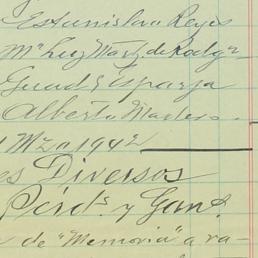 Estanislao Reyes
Ma Luz Mart. de Rodgz
Guad E Esparza
Alberto
Mzo 1942
es Diversos
Pérds. y Gans.
de "Memoria" a va-